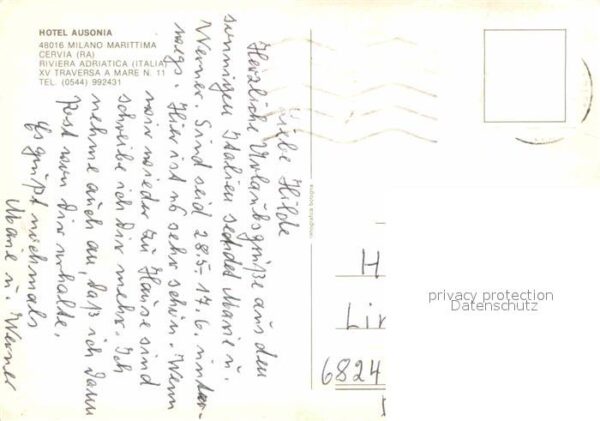 HOTEL AUSONIA
48016 MILANO MARITTIMA
CERVIA (RA)
RIVIERA ADRIATICA (ITALIA)
XV TRAVERSA A MARE N. 11
TEL. (0544) 992431
Liebe Hilde
Herzliche Urlaubsgrüße aus dem
sonnigen Italien sendet Marie u.
Werner. Sind seid 28.5-17.6. unter-
wegs. Hier ist es sehr schön. Wenn
wir wieder zu Hause sind
schreibe ich Dir mehr. Ich
nehme auch an, daß ich dann
Post von Dir erhalte.
Es grüßt nochmals
Marie u. Werner
fotografica bologna
H
Lin
6824
privacy protection
Datenschutz